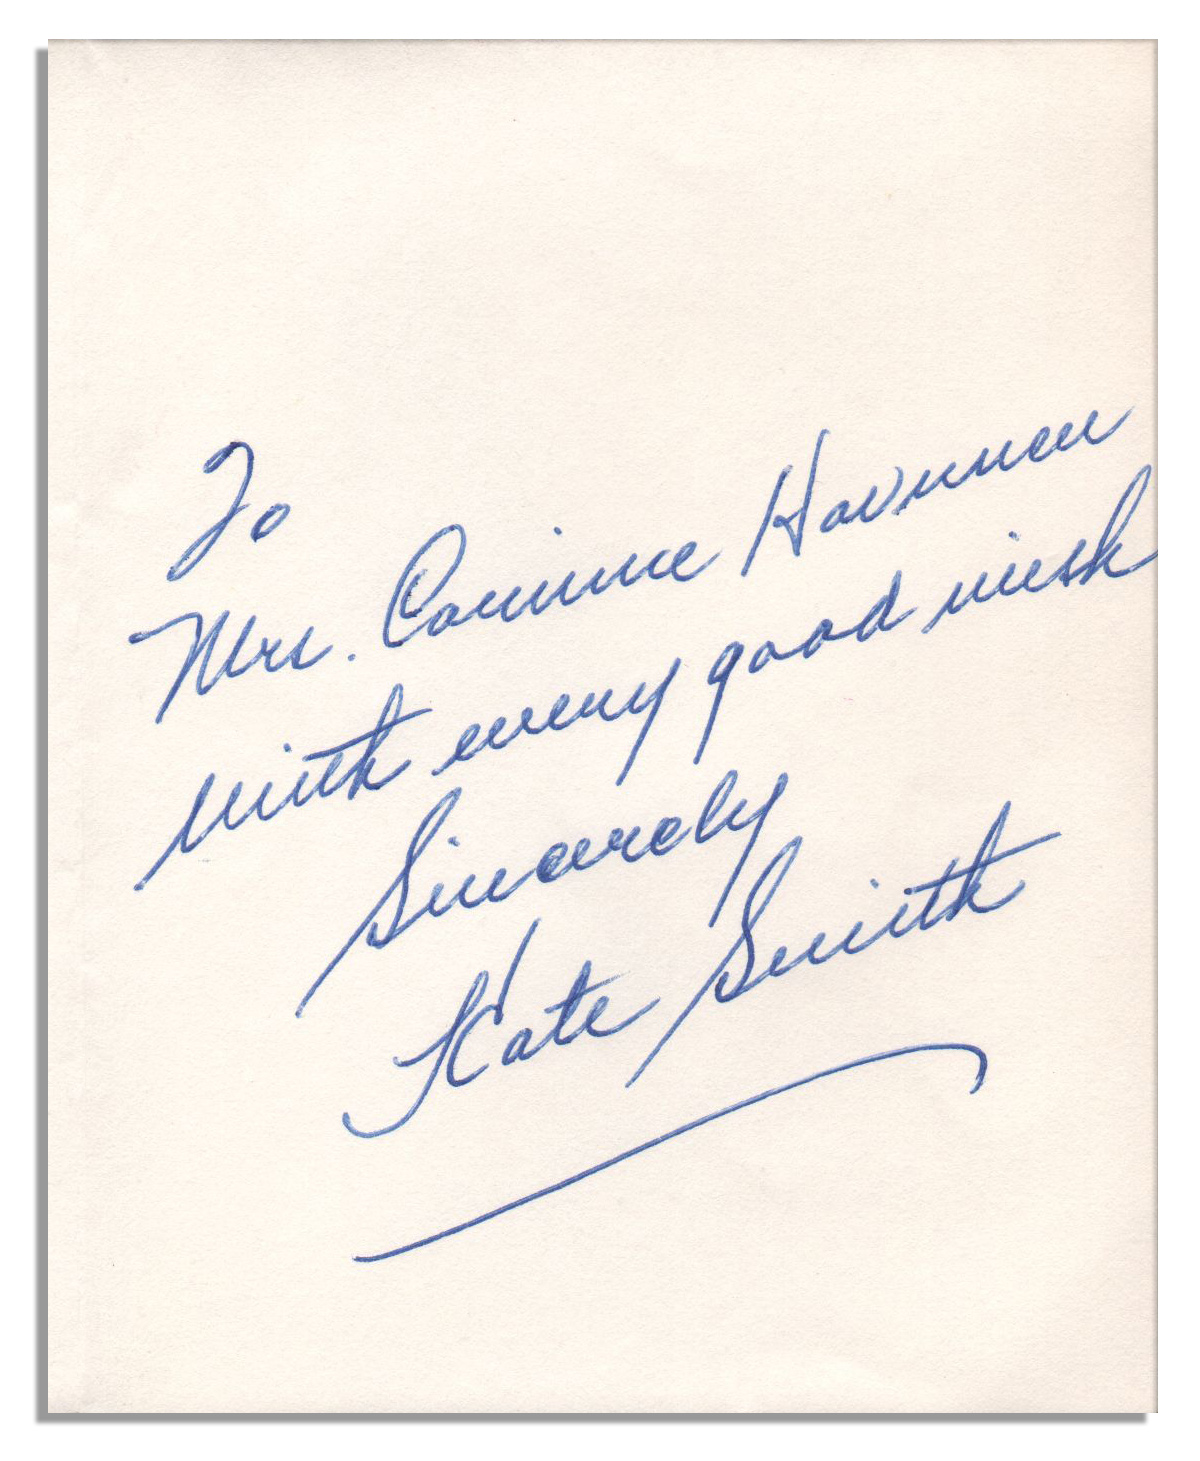 To
Mrs. Corinne
with every good wish
Sincerely
Kate Smith